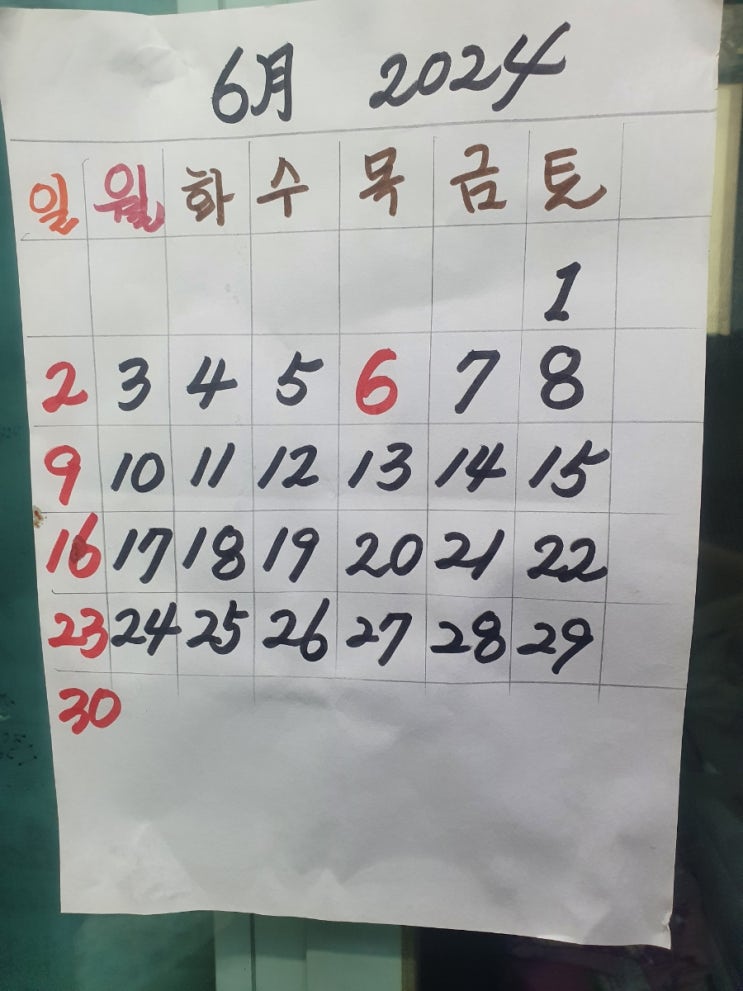 6月 2024
일 월 화 수 목 금 토
1
2 3 4 5 6 7 8
9 10 11 12 13 14 15
16 17 18 19 20 21 22
23 24 25 26 27 28 29
30